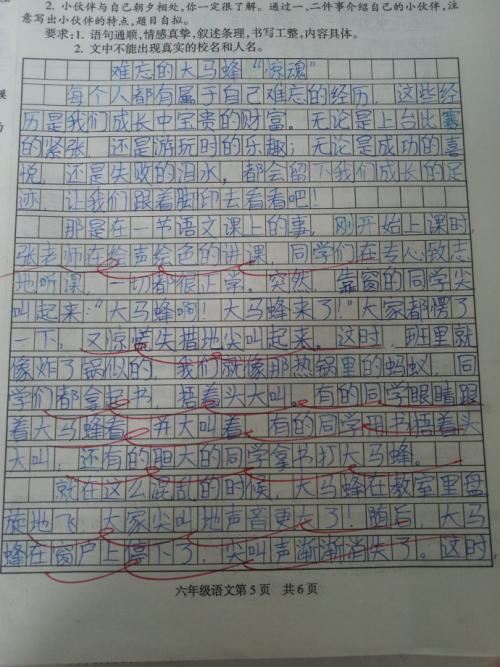 2. 小伙伴与自己朝夕相处,你一定很了解。通过一、二件事介绍自己的小伙伴,注
意写出小伙伴的特点,题目自拟。
要求:1. 语句通顺,情感真挚,叙述条理,书写工整,内容具体。
2. 文中不能出现真实的校名和人名。
难忘的大马蜂“惊魂”
每个人都有属于自己难忘的经历,这些经
历是我们成长中宝贵的财富。无论是上台比赛
的紧张,还是游玩时的乐趣;无论是成功的喜
悦,还是失败的泪水,都会留下我们成长的足
迹,让我们跟着脚印去看看吧!
那是在一节语文课上的事,刚开始上课时,
张老师在绘声绘色的讲课,同学们在专心致志
地听课,一切都很正常。突然,靠窗的同学尖
叫起来:“大马蜂啊!大马蜂来了!”大家都愣了
一下,又惊慌失措地尖叫起来。这时,班里就
像炸了锅似的,我们就像那热锅里的蚂蚁,同
学们都拿起书,捂着头大叫。有的同学眼睛跟
着大马蜂看,并大叫着,有的同学用书捂着头
大叫,还有的胆大的同学拿书打大马蜂。
就在这么混乱的时候,大马蜂在教室里盘
旋地飞,大家尖叫地声音更大了!随后,大马
蜂在窗户上停下了,尖叫声渐渐消失了。这时,
六年级语文第5页 共6页